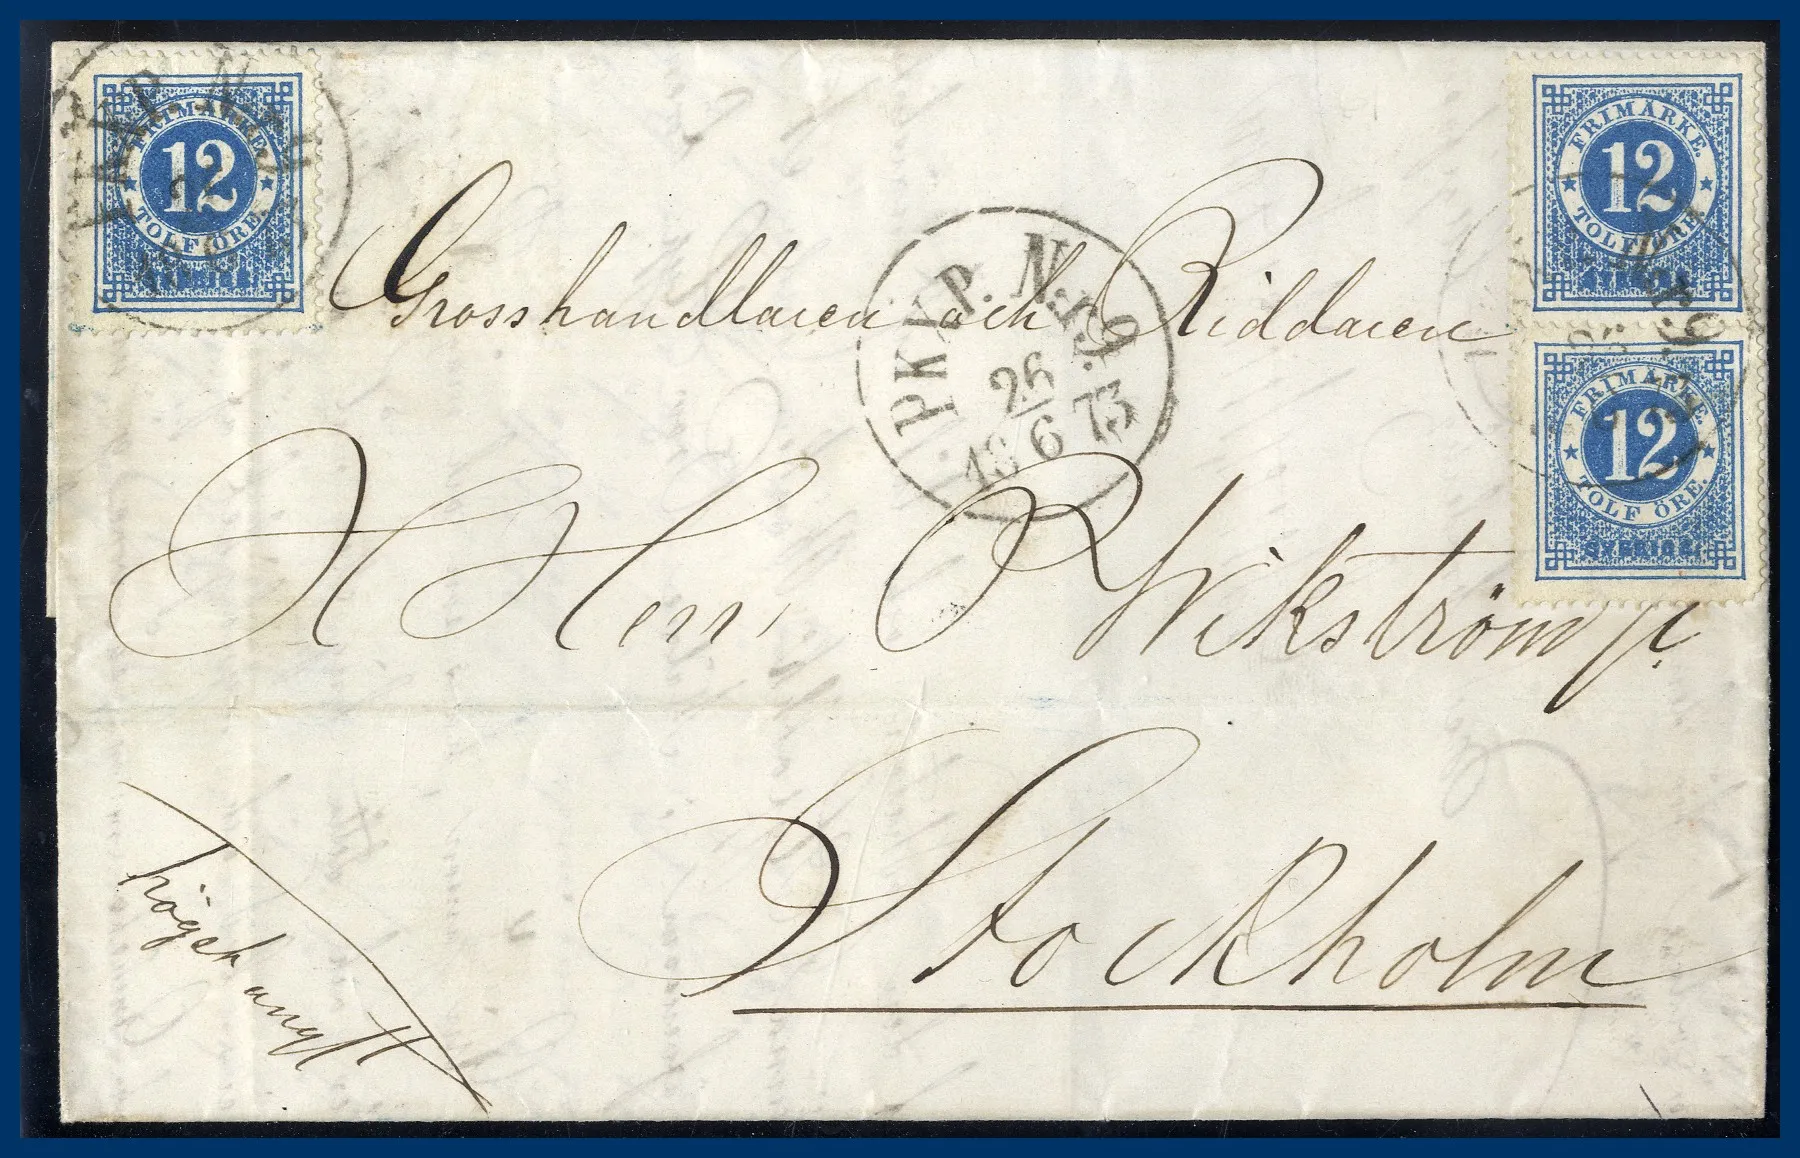 FRIMÄRKE.
12
TOLF ÖRE.
FRIMÄRKE.
12
TOLF ÖRE
FRIMÄRKE.
12
TOLF ÖRE.
SVERIGE.
PKXP. Nr. 79
26
18 6 73
Grosshandlaren och Riddaren
H Herr P Wikström jr.
Stockholm
högst angtt